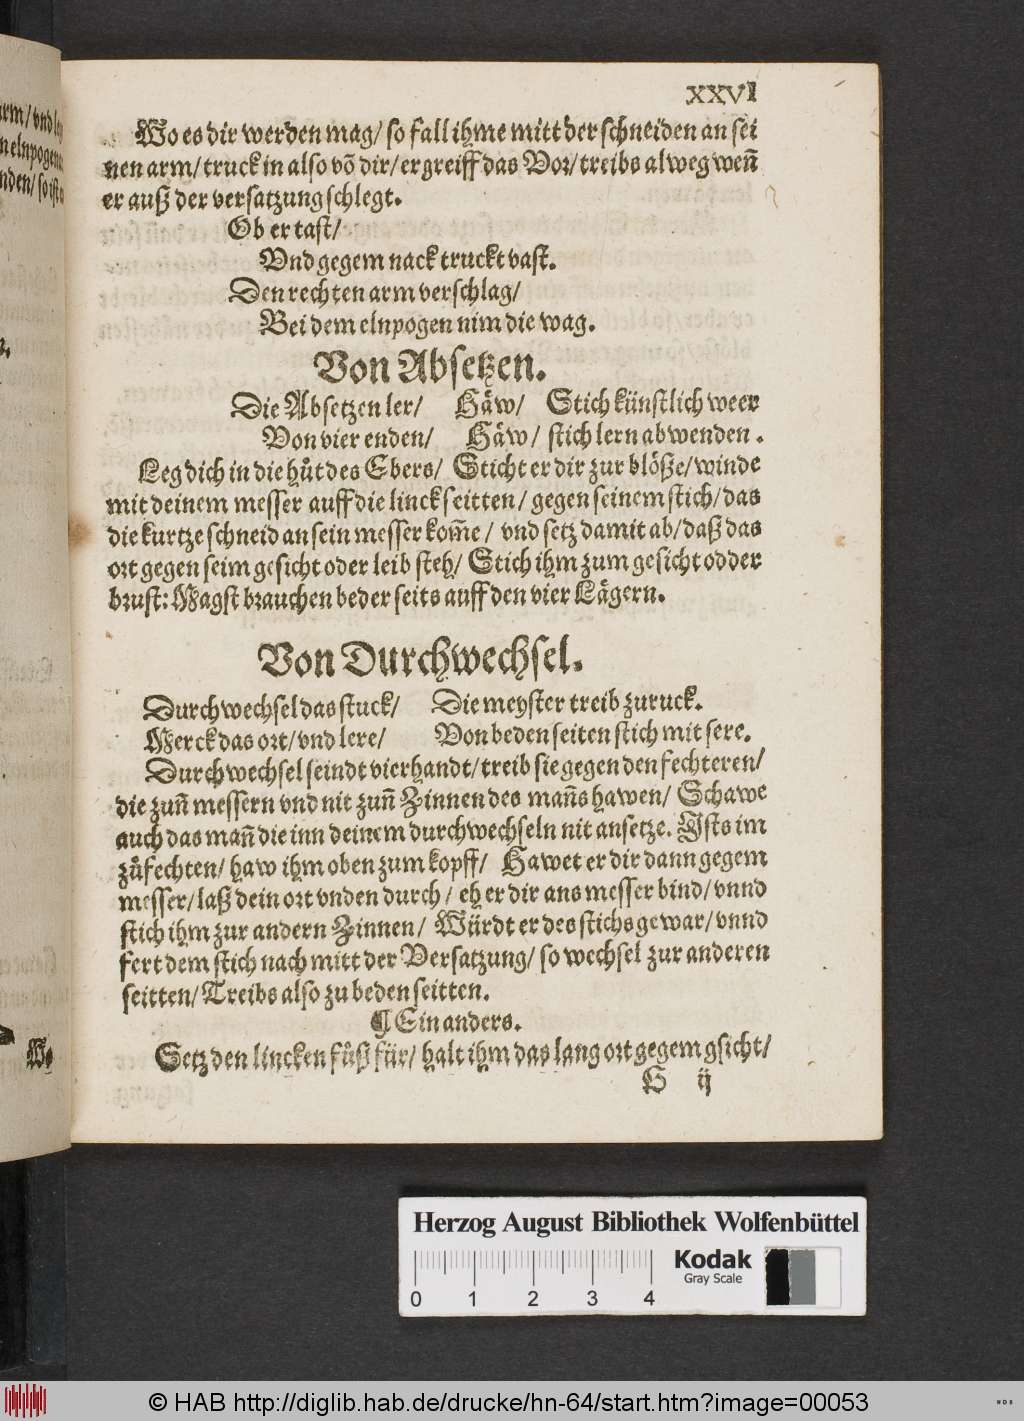 arm/ vnd
n elnpogen
nden/ so ist
Wo
XXVI
Wo es dir werden mag/ so fall ihme mitt der schneiden an sei
nen arm/ truck in also võ dir/ ergreiff das Vor/ treibs alweg weñ
er auß der versatzung schlegt.
Ob er tast/
Vnd gegem nack truckt vast.
Den rechten arm verschlag/
Bei dem elnpogen nim die wag.
Von Absetzen.
Die Absetzen ler/ Häw/ Stich künstlich weer
Von vier enden/ Häw/ stich lern abwenden.
Leg dich in die hůt des Ebers/ Sticht er dir zur blöße/ winde
mit deinem messer auff die linck seitten/ gegen seinem stich/ das
die kurtze schneid an sein messer kom̃e/ vnd setz damit ab/ daß das
ort gegen seim gesicht oder leib steh/ Stich ihm zum gesicht odder
brust: Magst brauchen beder seits auff den vier Lägern.
Von Durchwechsel.
Durchwechsel das stuck/ Die meyster treib zuruck.
Merck das ort/ vnd lere/ Von beden seiten stich mit sere.
Durchwechsel seindt vierhandt/ treib sie gegen den fechteren/
die zuñ messern vnd nit zuñ Zinnen des mañs hawen/ Schawe
auch das mañ die inn deinem durchwechseln nit ansetze. Ists im
zůfechten/ haw ihm oben zum kopff/ Hawet er dir dann gegem
messer/ laß dein ort vnden durch/ eh er dir ans messer bind/ vnnd
stich ihm zur andern Zinnen/ Würdt er des stichs gewar/ vnnd
fert dem stich nach mitt der Versatzung/ so wechsel zur anderen
seitten/ Treibs also zu beden seitten.
¶ Ein anders.
Setz den lincken fůß für/ halt ihm das lang ort gegem gsicht/
H ij
Herzog August Bibliothek Wolfenbüttel
0 1 2 3 4
Kodak
Gray Scale
© HAB http://diglib.hab.de/drucke/hn-64/start.htm?image=00053